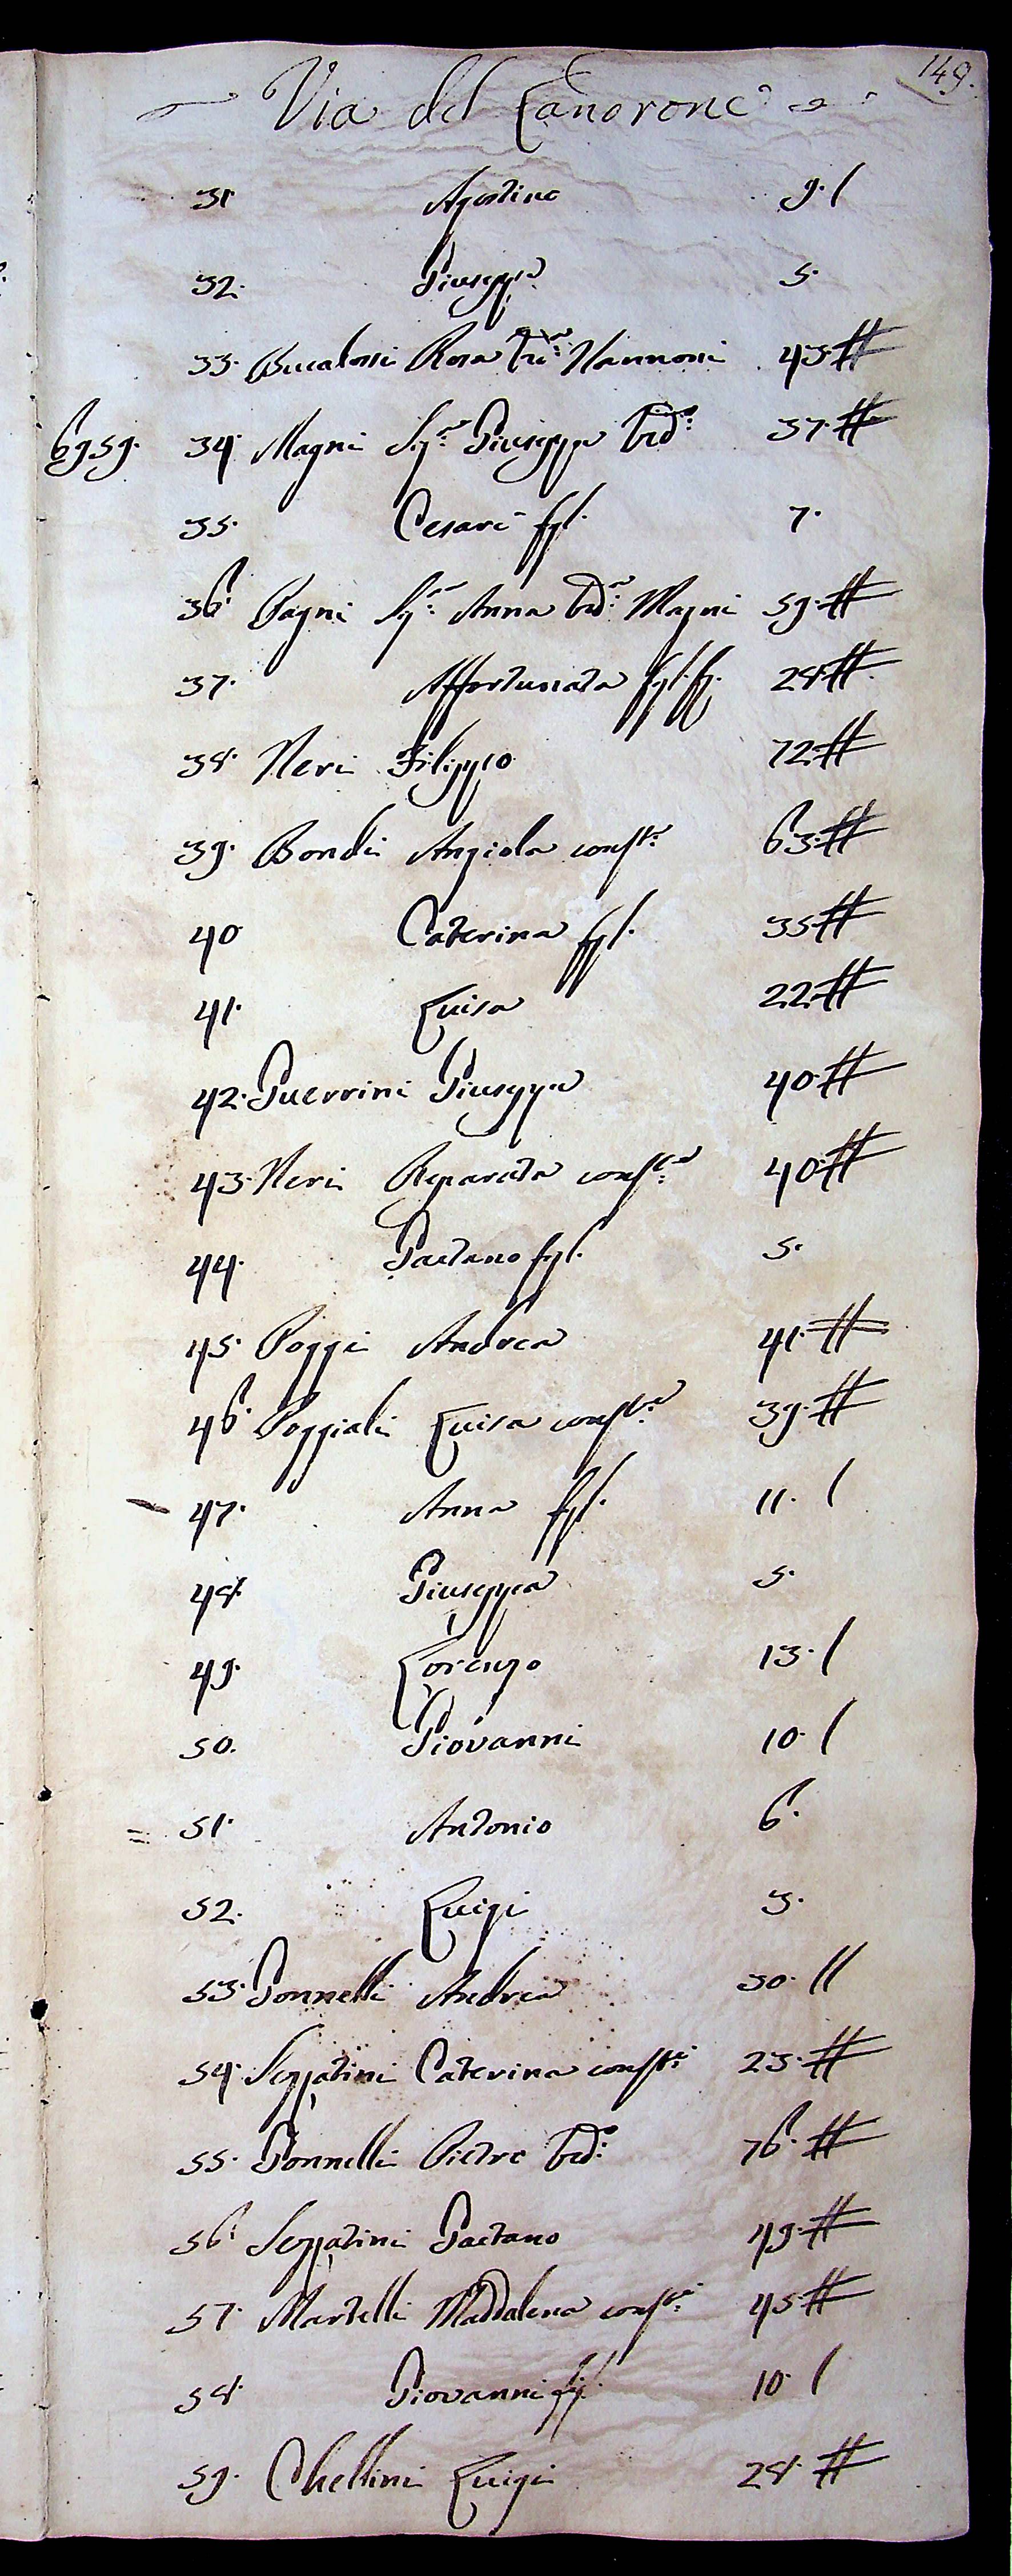 149.
Via del Candrone
31 Agostino 9. /
32. Giuseppa 5.
33. Bucalossi Rosa Nannoni 43. #
6959. 34 Magni Sig.re Giuseppe Ved.o 37. #
35. Cesare fgl. 7.
36. Pagni Sig.ra Anna Ved.a Magni 59. #
37. Affortunata fgl. 28 #.
38. Neri Filippo 72. #
39. Bondi Angiola cons.te 63. #
40 Caterina fgl. 35 #
41. Luisa 22. #
42. Guerrini Giuseppe 40 #
43. Neri Reparata cons.te 40 #
44. Gaetano fgl. 5.
45. Poggi Andrea 41. #
46. Poggiali Luisa cons.te 39. #
47. Anna fgl. 11. /
48. Giuseppa 5.
49. Lorenzo 13. /
50. Giovanni 10. /
= 51. Antonio 6.
52. Luigi 3.
53. Gonnelli Andrea 30. //
54. Scappatini Caterina cons.te 23. #
55. Gonnelli Pietro Ved.o 76. #
56. Scappatini Gaetano 49. #
57. Martelli Maddalena cons.te 45 #
58. Giovanni fgl. 10. /
59. Chellini Luigi 28. #